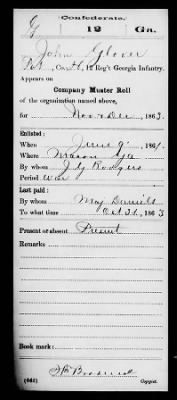 Confederate.
G 12 Ga.
John Glover
Pvt, Co. H, 12 Reg't Georgia Infantry.
Appears on
Company Muster Roll
of the organization named above,
for Nov & Dec, 1863.
Enlisted:
When June 9, 1861.
Where Macon Ga
By whom J. G. Rodgers
Period War
Last paid:
By whom Maj Daniels
To what time Oct 31, 1863
Present or absent Present
Remarks
Book mark:
(642) Copyist.